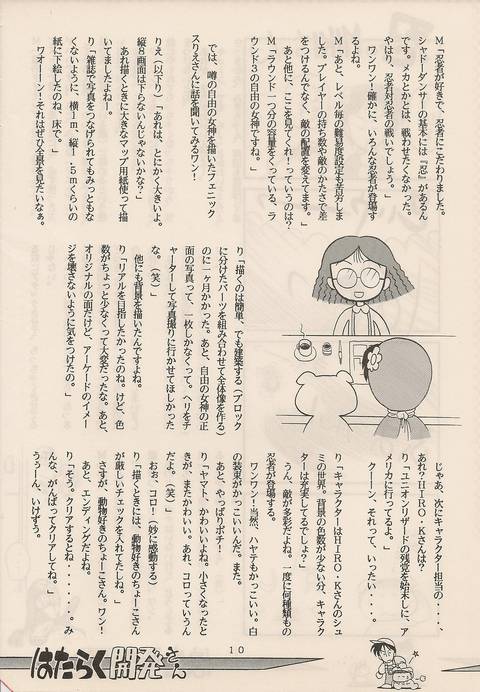 M「忍者が好きで、忍者にこだわりました。
シャドーダンサーの基本には『忍』があるん
です。メカとかとは、戦わせたくなかった。
やはり、忍者対忍者の戦いでしょう。」
ワンワン！確かに、いろんな忍者が登場す
るよね。
M「あと、レベル毎の難易度設定も苦労しま
した。プレイヤーの持ち数や敵のかたさで差
をつけるんでなく、敵の配置を変えてます。」
あと他に、ここを見てくれ！っていうのは？
M「ラウンド一つ分の容量をくっている、ラ
ウンド3の自由の女神ですね。」
では、噂の自由の女神を描いたフェニック
スりえさんに話を聞いてみるワン！
りえ（以下り）「あれは、とにかく大きいよ。
縦8画面は下らないんじゃないかな？」
あれ描くときに大きなマップ用紙使って描
いてましたよねー。
り「雑誌で写真をつなげられてもみっともな
くないように、横1m、縦1．5mくらいの
紙に下絵したのね、床で。」
ワオーーン！それはぜひ全景を見たいなぁ。
り「描くのは簡単、でも建築する（ブロック
に分けたパーツを組み合わせて全体像を作る）
のに一ヶ月かかった。あと、自由の女神の正
面の写真って、一枚しかなくって、ヘリをチ
ャーターして写真撮りに行かせてほしかった
な。（笑）」
他にも背景を描いたんですよね。
り「リアルを目指したかったのね。けど、色
数がちょっと少なくって大変だったな。あと、
オリジナルの面だけど、アーケードのイメー
ジを壊さないように気をつけたの。」
じゃあ、次にキャラクター担当の・・・・、
あれ？HIRO・Kさんは？
り「ユニオンリザードの残党を始末しに、ア
メリカに行ってるよ。」
クーーン、それって、いったい・・・。
り「キャラクターはHIRO・Kさんのシュ
ミの世界。背景の色数が少ない分、キャラク
ターは充実してるでしょ？」
うん、敵が多彩だよね。一度に何種類もの
忍者が登場する。
ワンワン！当然、ハヤテもかっこいい。白
の装束がかっこいいんだ。また。
あと、やっぱりポチ！
り「ヤマト、かわいいよね。小さくなったと
きが、またかわいい。あれ、コロっていうん
だよ。（笑）」
おぉ、コロ！（妙に感動する）
り「描くときには、動物好きのちょーこさん
が厳しいチェックを入れてたしね。」
さすが、動物好きのちょーこさん。ワン！
あと、エンディングだよね。
り「そう。クリアするとね・・・・・。み
んな、がんばってクリアしてね。」
うぅーん、いけずう。
10
はたらく開発さん